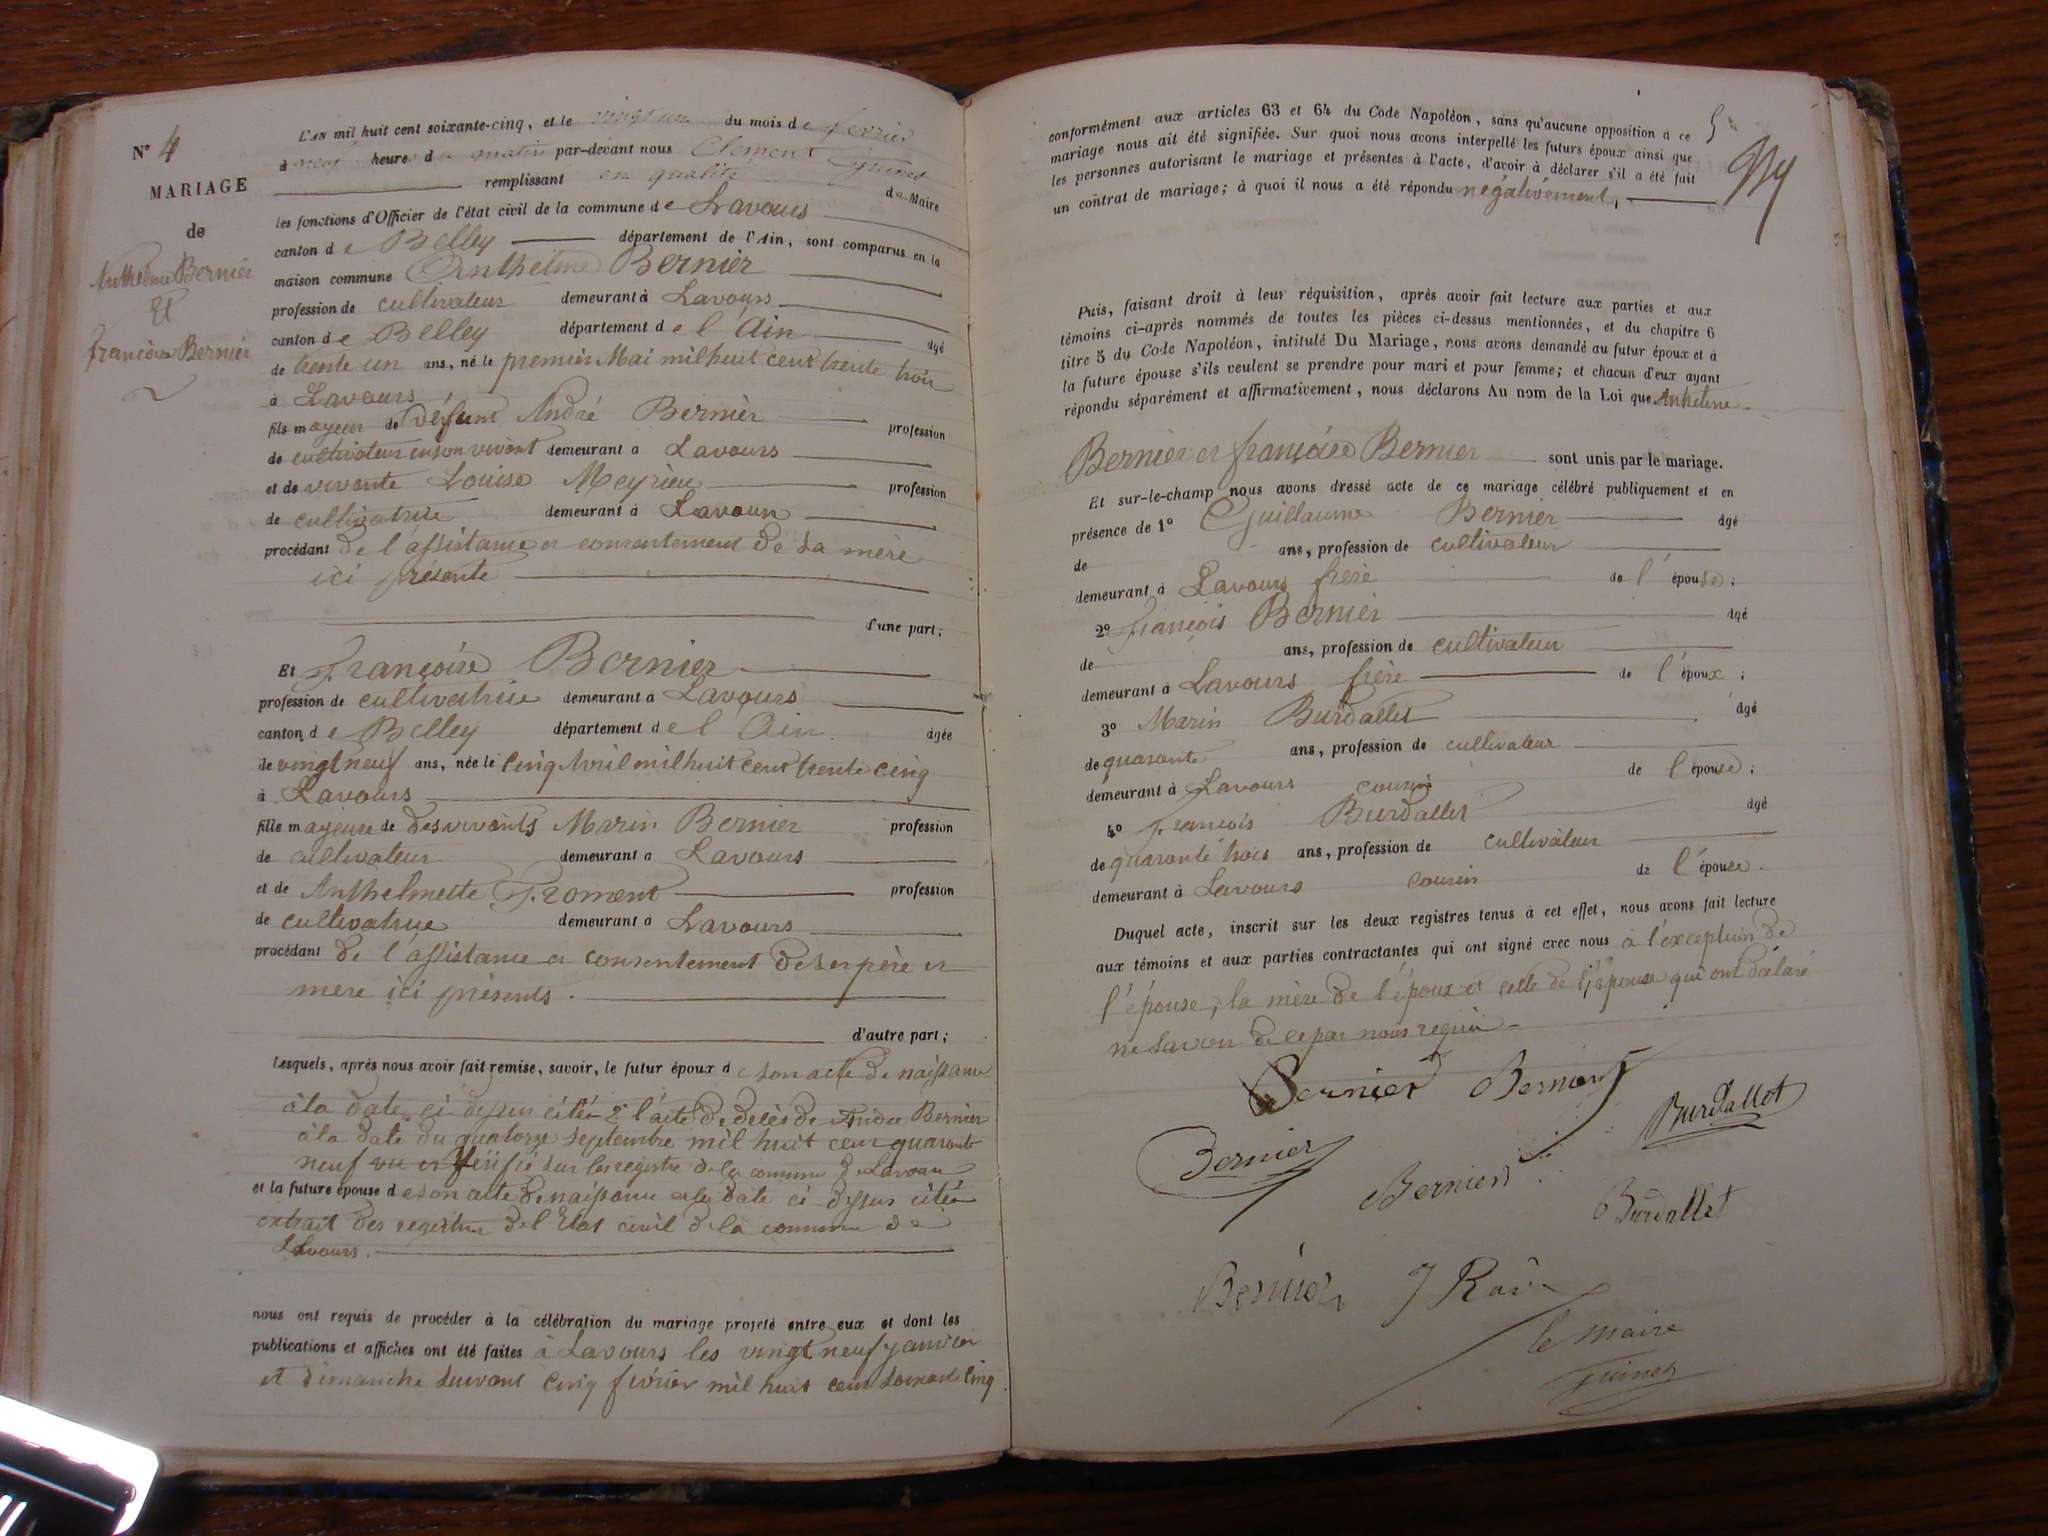 N° 4
MARIAGE
de
Anthelme Bernier
Et
françoise Bernier
L'AN mil huit cent soixante-cinq, et le vingt un du mois de fevrier
à neuf heure du matin par-devant nous Clement Guinet
remplissant en qualité de Maire
les fonctions d'Officier de l'état civil de la commune de Lavours
canton de Belley département de l'Ain, sont comparus en la
maison commune Anthelme Bernier
profession de cultivateur demeurant à Lavours
canton de Belley département de l'Ain âgé
de trente un ans, né le premier Mai mil huit cent trente trois
à Lavours
fils mayeur de défunt André Bernier profession
de cultivateur en son vivant demeurant à Lavours
et de vivante Louise Meyrieu profession
de cultivatrice demeurant à Lavours
procédant de l'assistance et consentement de sa mère
ici présente
d'une part;
Et françoise Bernier
profession de cultivatrice demeurant à Lavours
canton de Belley département de l'Ain âgée
de vingt neuf ans, née le cinq Avril mil huit cent trente cinq
à Lavours
fille mayeure de des vivants Marin Bernier profession
de cultivateur demeurant à Lavours
et de Anthelmette froment profession
de cultivatrice demeurant à Lavours
procédant de l'assistance et consentement de ses père et
mère ici présents.
d'autre part;
lesquels, après nous avoir fait remise, savoir, le futur époux de son acte de naissance
à la date ci dessus citée 2° l'acte de decès de André Bernier
à la date du quatorze septembre mil huit cent quarante
neuf vu et vérifié sur les registre de la commune de Lavours
et la future épouse de son acte de naissance a la date ci dessus citée
extrait des registres de l'Etat civil de la commune de
Lavours.
nous ont requis de procéder à la célébration du mariage projeté entre eux et dont les
publications et affiches ont été faites à Lavours les vingt neuf janvier
et dimanche suivant cinq février mil huit cent soixante cinq
5
conformément aux articles 63 et 64 du Code Napoléon, sans qu'aucune opposition à ce
mariage nous ait été signifiée. Sur quoi nous avons interpellé les futurs époux ainsi que
les personnes autorisant le mariage et présentes à l'acte, d'avoir à déclarer s'il a été fait
un contrat de mariage; à quoi il nous a été répondu négativement,
Puis, faisant droit à leur réquisition, après avoir fait lecture aux parties et aux
témoins ci-après nommés de toutes les pièces ci-dessus mentionnées, et du chapitre 6
titre 5 du Code Napoléon, intitulé Du Mariage, nous avons demandé au futur époux et à
la future épouse s'ils veulent se prendre pour mari et pour femme; et chacun d'eux ayant
répondu séparément et affirmativement, nous déclarons Au nom de la Loi que Anthelme
Bernier et françoise Bernier sont unis par le mariage.
Et sur-le-champ nous avons dressé acte de ce mariage célébré publiquement et en
présence de 1° Guillaume Bernier âgé
de ans, profession de cultivateur
demeurant à Lavours frère de l'épouse;
2° françois Bernier âgé
de ans, profession de cultivateur
demeurant à Lavours frère de l'époux;
3° Marin Burdallet âgé
de quarante ans, profession de cultivateur
demeurant à Lavours cousin de l'épouse;
4° françois Burdallet âgé
de quarante trois ans, profession de cultivateur
demeurant à Lavours cousin de l'épouse.
Duquel acte, inscrit sur les deux registres tenus à cet effet, nous avons fait lecture
aux témoins et aux parties contractantes qui ont signé avec nous à l'exception de
l'épouse, la mère de l'époux et celle de l'épouse qui ont déclaré
ne savoir de ce par nous requis
Bernier Bernier
Burdallet
Bernier
Bernier
Burdallet
Bernier
le maire
Guinet